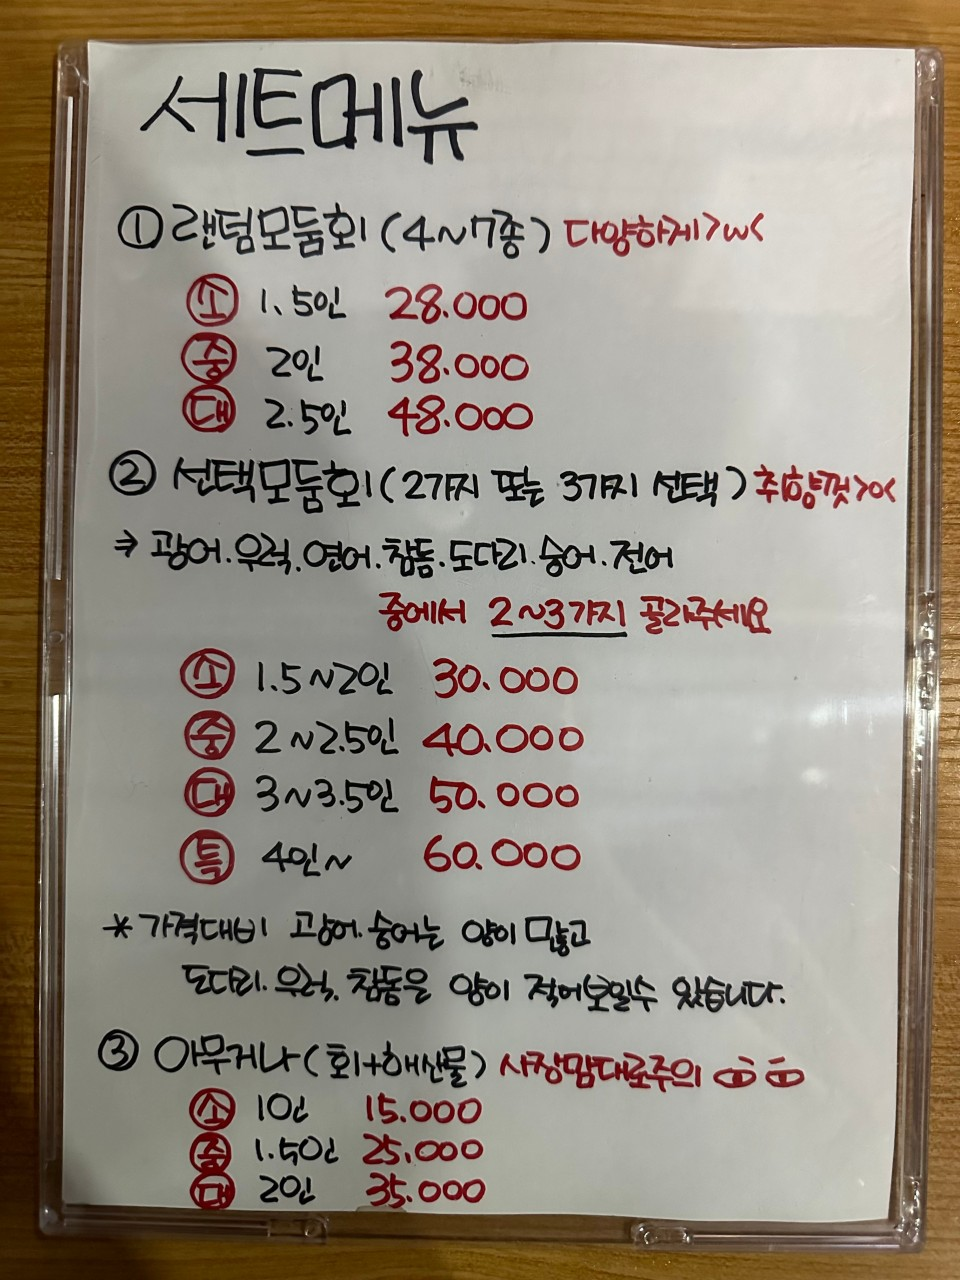 세트메뉴
① 랜덤모둠회 (4~7종) 다양하게>w<
소 1.5인 28.000
중 2인 38.000
대 2.5인 48.000
② 선택모둠회 (2가지 또는 3가지 선택) 취향껏>o<
⇒ 광어.우럭.연어.참돔.도다리.숭어.전어
중에서 2~3가지 골라주세요
소 1.5~2인 30.000
중 2~2.5인 40.000
대 3~3.5인 50.000
특 4인~ 60.000
* 가격대비 광어.숭어는 양이 많고
도다리.우럭.참돔은 양이 적어보일수 있습니다.
③ 아무거나 (회+해산물) 사장맘대로주의
소 1인 15.000
중 1.5인 25.000
대 2인 35.000